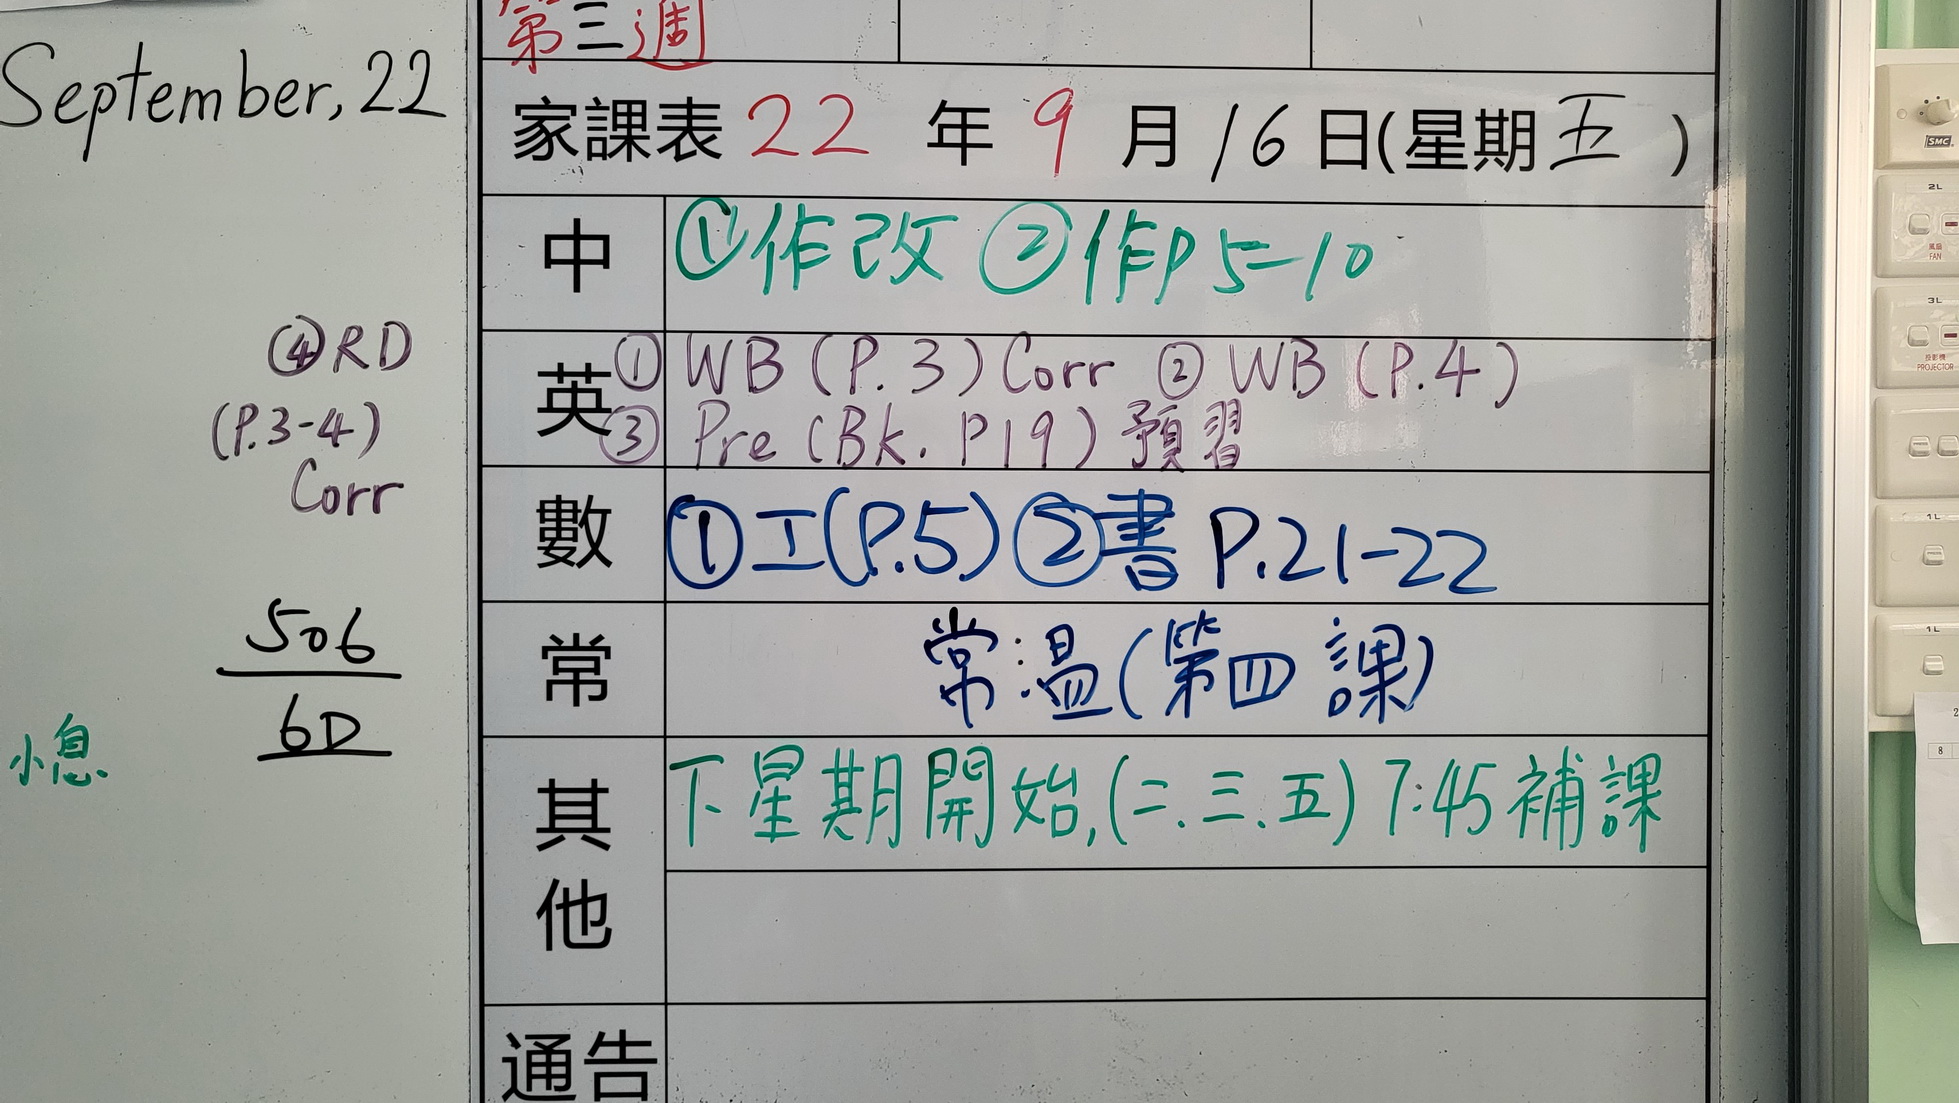 第三週
September, 22
家課表 22 年 9 月 16 日(星期 五 )
中
①作改 ②作P5-10
英
① WB (P.3) Corr ② WB (P.4)
③ Pre (Bk. P19) 預習
④RD
(P.3-4)
Corr
數
①工(P.5) ②書 P.21-22
506
6D
常
常:温(第四課)
小息
其他
下星期開始,(二.三.五) 7:45 補課
通告
SMC
2L
風扇
FAN
3L
投影機
PROJECTOR
1L
1L
2
8